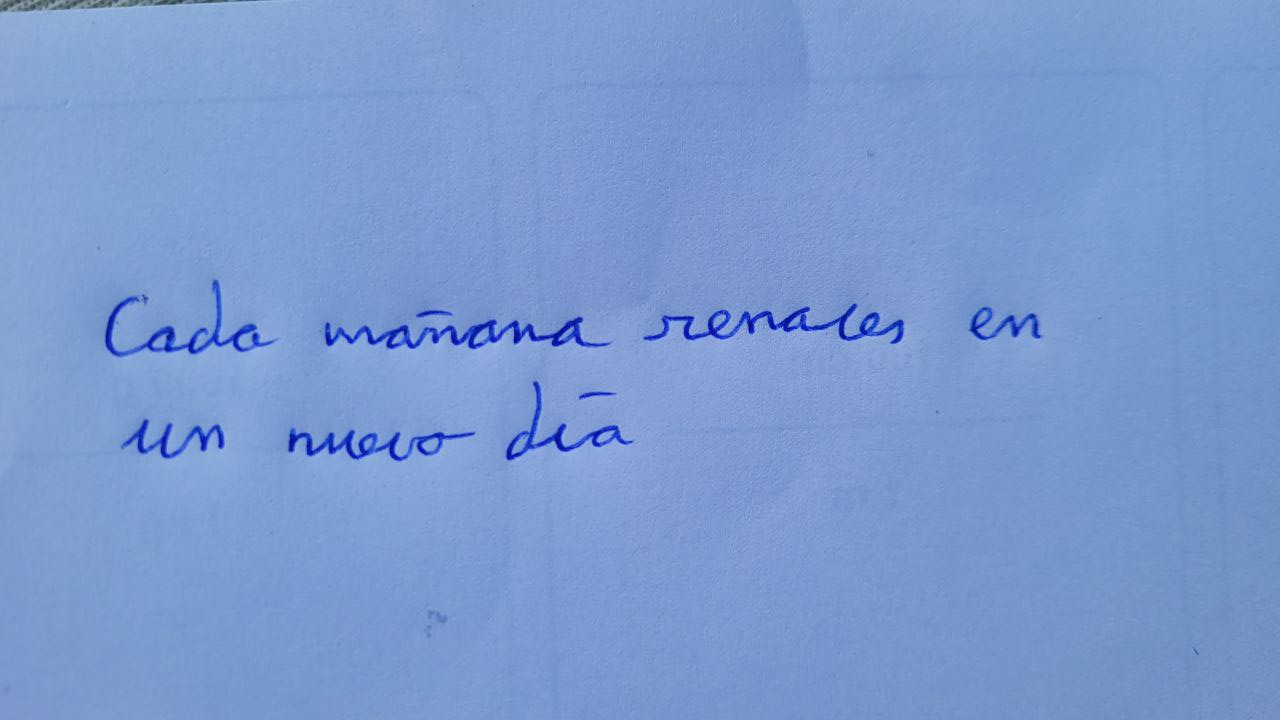 Cada mañana renaces en
un nuevo día